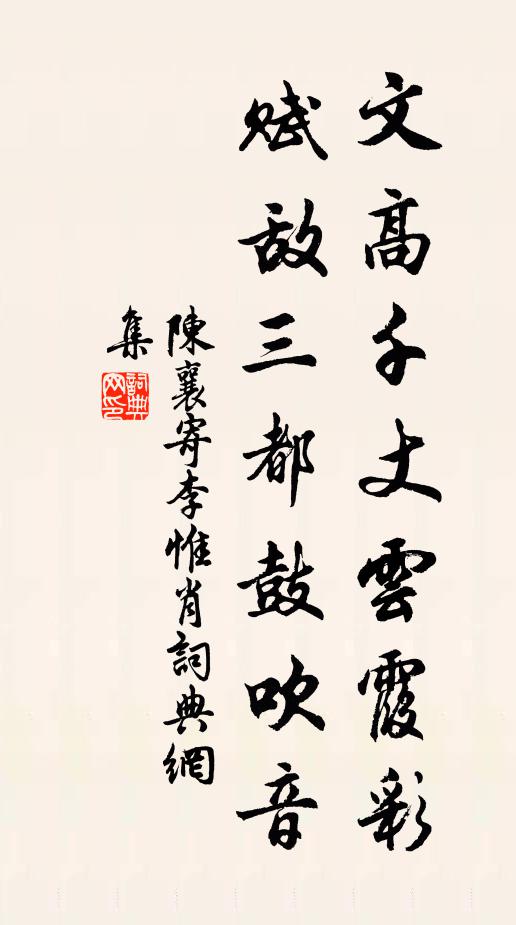 文高千丈雲霞彩
賦敵三都鼓吹音
陳襄寄李惟肖詞典網
集
詞典
网印